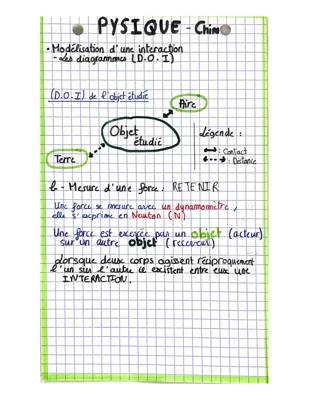 PYSIQUE - Chim
• Modélisation d'une interaction
- Les diagrammes (D.O.I)
(D.O.I) de l'objet étudié
Aire
Objet étudié
Terre
Légende :
: Contact
: Distance
b - Mesure d'une force : RETENIR
Une force se mesure avec un dynamomètre,
elle s'exprime en Newton (N)
Une force est exercée par un objet (acteur)
sur un autre objet (receveur)
Lorsque deux corps agissent réciproquement
l'un sur l'autre il existent entre eux une
INTERACTION.